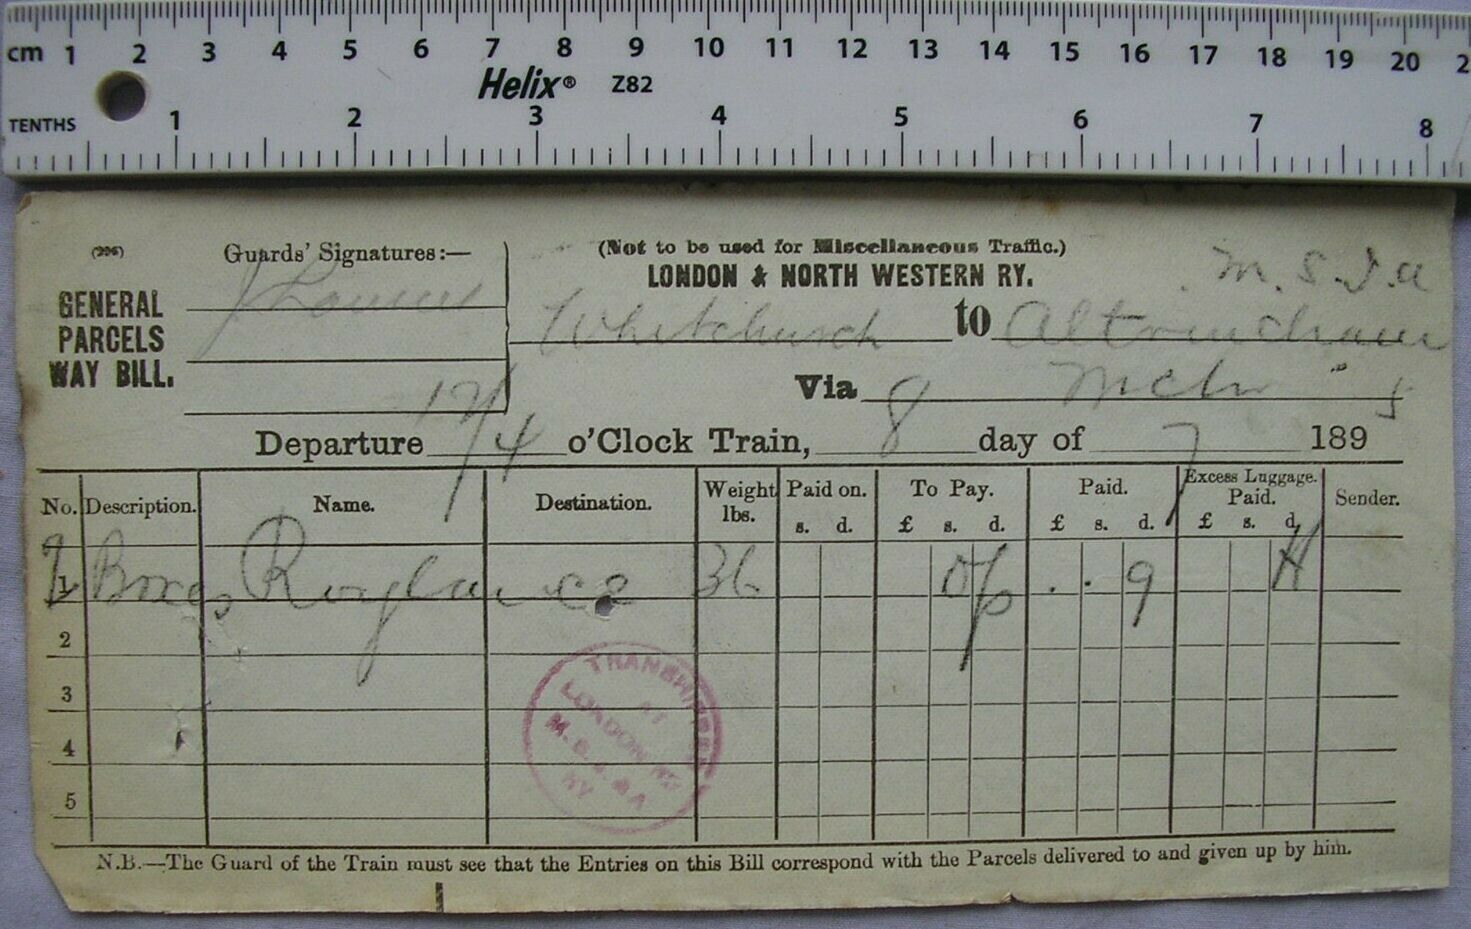 cm 1 2 3 4 5 6 7 8 9 10 11 12 13 14 15 16 17 18 19 20 2
Helix® Z82
TENTHS 1 2 3 4 5 6 7 8
(226) Guards' Signatures:— (Not to be used for Miscellaneous Traffic.)
LONDON & NORTH WESTERN RY. M.S.J.A
GENERAL
PARCELS
WAY BILL.
Whitchurch to Altrincham
Via Mchr
Departure 17/4 o'Clock Train, 8 day of 7 1895
No. Description. Name. Destination. Weight lbs. Paid on. To Pay. Paid. Excess Luggage. Paid. Sender.
s. d. £ s. d. £ s. d. £ s. d.
1 Boxes 36 9
2
3
4
5
TRANSHIPPED
AT
LONDON RD
M.S.J.&A
RY
N.B.—The Guard of the Train must see that the Entries on this Bill correspond with the Parcels delivered to and given up by him.